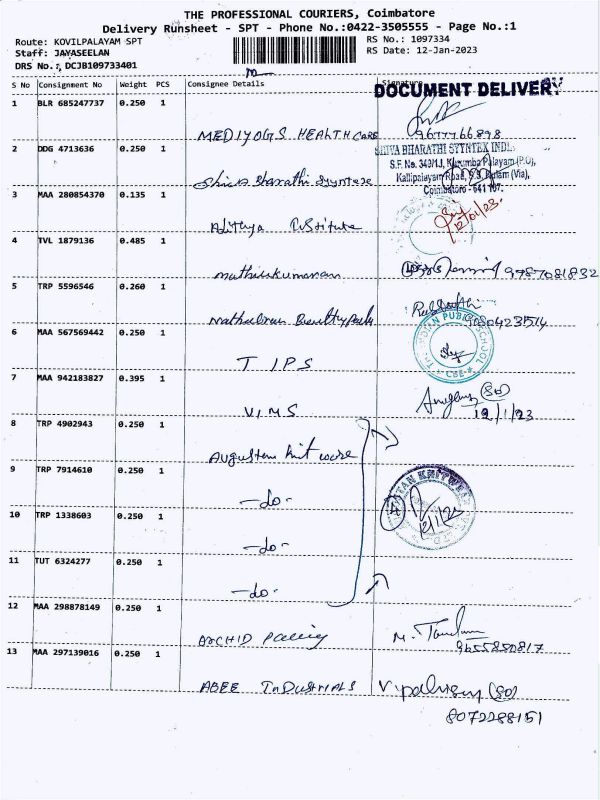 THE PROFESSIONAL COURIERS, Coimbatore
Delivery Runsheet - SPT - Phone No.:0422-3505555 - Page No.:1
Route: KOVILPALAYAM SPT
Staff: JAYASEELAN
DRS No.: DCJB109733401
RS No.: 1097334
RS Date: 12-Jan-2023
S No Consignment No Weight PCS Consignee Details Signature
DOCUMENT DELIVERY
1 BLR 685247737 0.250 1
MEDIYOGS HEALTHCARE 9677766898
2 DDG 4713636 0.250 1
Shiva Bharathi Syyntex
SHIVA BHARATHI SYYNTEX INDL.
S.F. No. 349/1J, Kurumba Palayam (P.O),
Kallipalayam Road, S.S. Kulam (Via),
Coimbatore - 641 107.
3 MAA 280854370 0.135 1
Adithya Institute
12/01/23.
4 TVL 1879136 0.485 1
Muthukumaran 9787081832
5 TRP 5596546 0.260 1
6 MAA 567569442 0.250 1
TIPS
PUBLIC SCHOOL
CBE
7 MAA 942183827 0.395 1
VIMS
12/1/23
8 TRP 4902943 0.250 1
Augusten knit ware
9 TRP 7914610 0.250 1
-do-
10 TRP 1338603 0.250 1
-do-
11 TUT 6324277 0.250 1
-do-
12 MAA 298878149 0.250 1
ARCHID
9655850817
13 MAA 297139016 0.250 1
ABEE INDUSTRIALS
8072288151